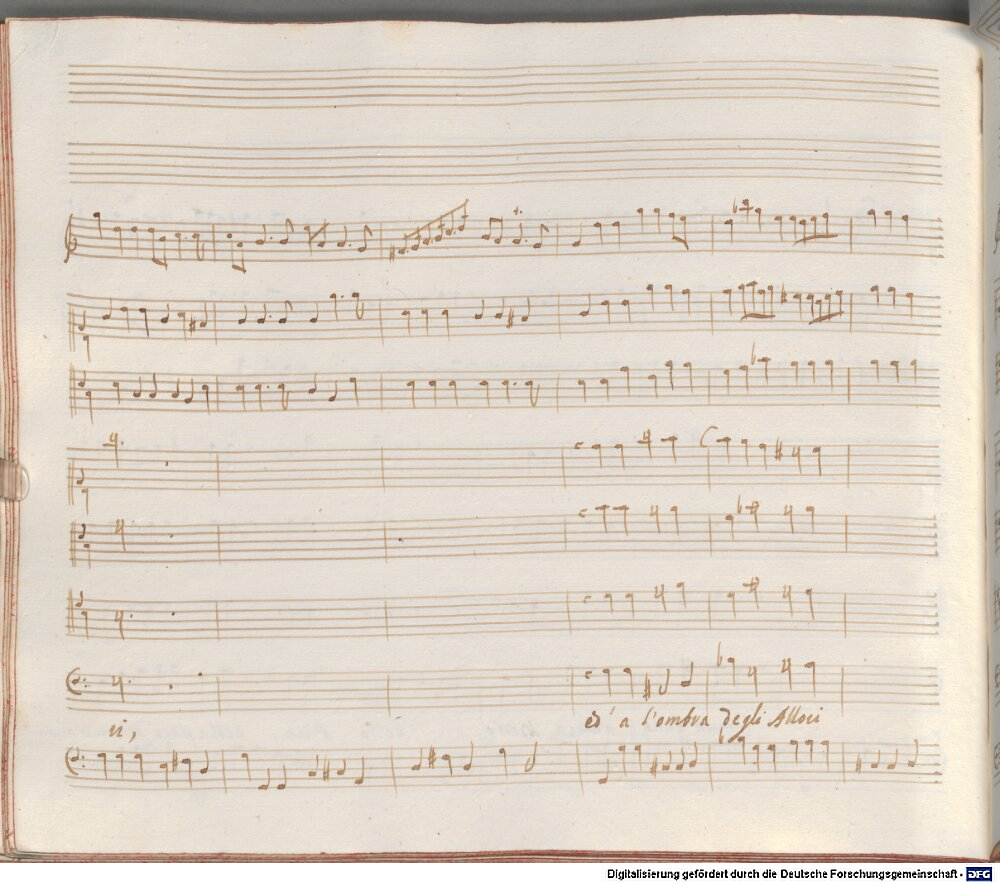 vi,
ed' a l'ombra degli Allori
Digitalisierung gefördert durch die Deutsche Forschungsgemeinschaft - DFG